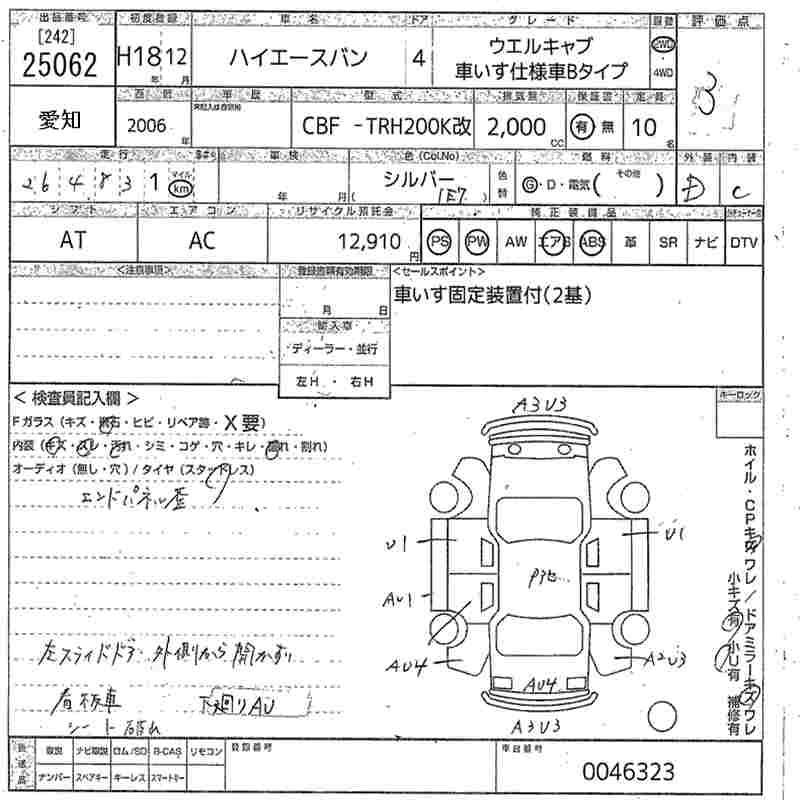 出品番号 初度登録 車名 ドア グレード 駆動 評価点
[242]
25062 H18 12 ハイエースバン 4 ウエルキャブ 2WD
車いす仕様車Bタイプ 4WD
年 月
3
愛知 車歴 型式 排気量 保証書 定員
2006 年 CBF -TRH200K改 2,000 CC 有 無 10 名
走行 車検 色(Col.No) 燃料 外装 内装
26483 1 マイル km 年 月 シルバー (1E7) 色替 G・D・電気( その他 ) D C
シフト エアコン リサイクル預託金 純正装備品
AT AC 12,910 円 PS PW AW エアB ABS 革 SR ナビ DTV
<注意事項> 登録書類有効期限 <セールスポイント>
月 日 車いす固定装置付(2基)
輸入車
ディーラー・並行
左H ・ 右H
<検査員記入欄> キーロック
A3U3
Fガラス(キズ・飛石・ヒビ・リペア跡・X要)
内装(キズ・スレ・汚れ・シミ・コゲ・穴・キレ・割れ)
オーディオ(無し・穴)/タイヤ(スタッドレス)
エンドパネル歪
U1 U1
AU1
左スライドドア 外側から開かず
AU4 A2U3
看板車 下廻りAU AU4
シート破れ
A3U3
ホイル・CPキズワレ/ドアミラーキズワレ
小キズ有 小U有 補修有
後送品 取説 ナビ取説 ロム/SD B-CAS リモコン 登録番号 車台番号
ナンバー スペアキー キーレス スマートキー 0046323